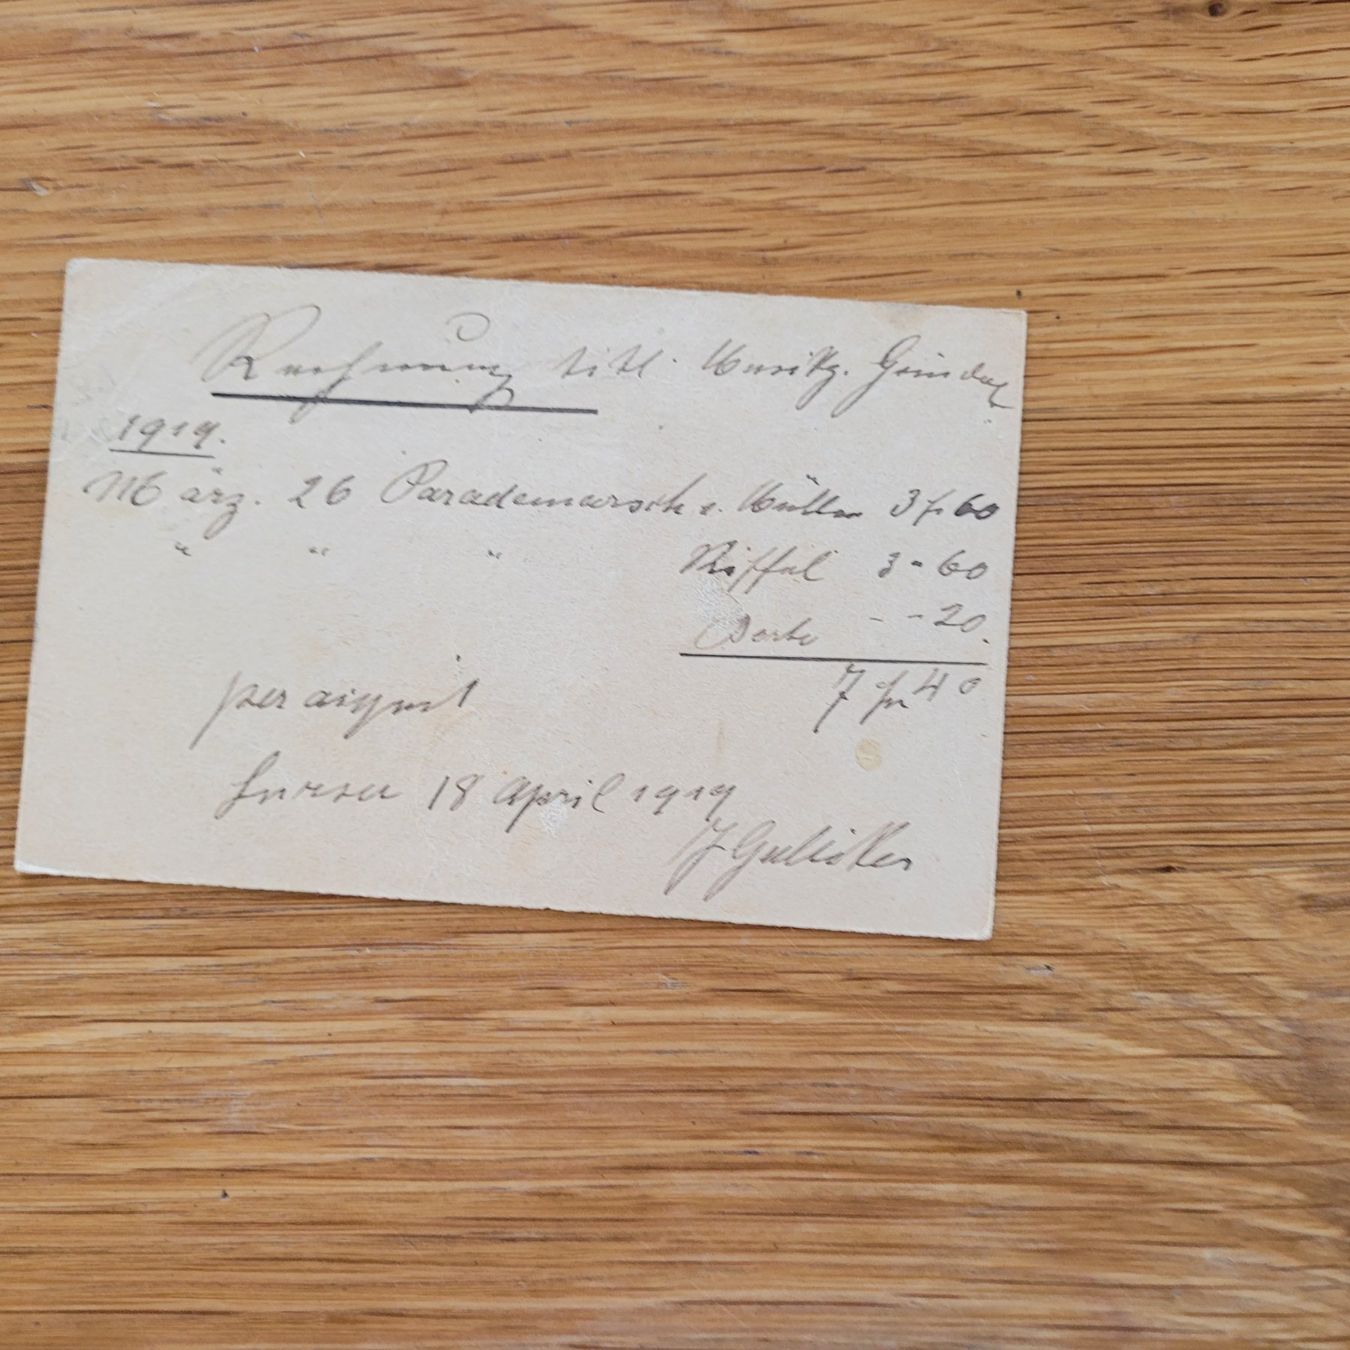 Rechnung titl. Musikg. Grindel
1919.
März. 26 Parademarsch v. Müller 3 fr 60
" " " Riffel 3 " 60
Porto - - 20.
7 fr 40
per aiquit
Sursee 18 April 1919